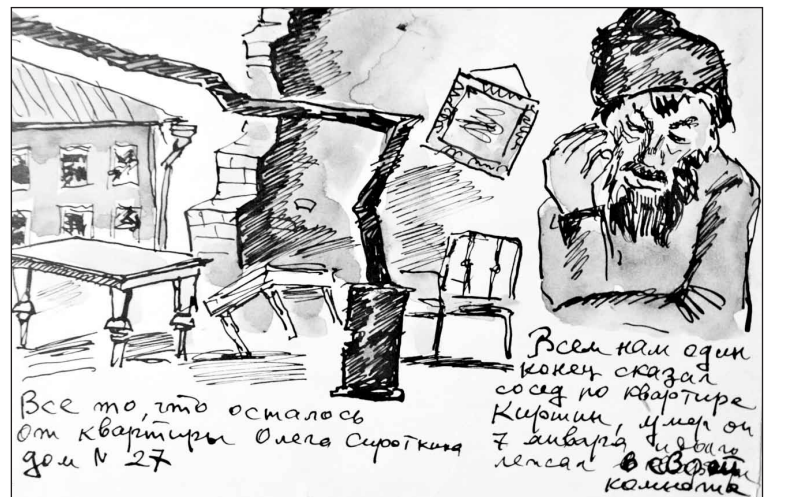 Все то, что осталось
от квартиры Олега Сироткина
дом N 27
Всем нам один
конец сказал
сосед по квартире
Киршин, умер он
7 января и долго
лежал в своей
комнате